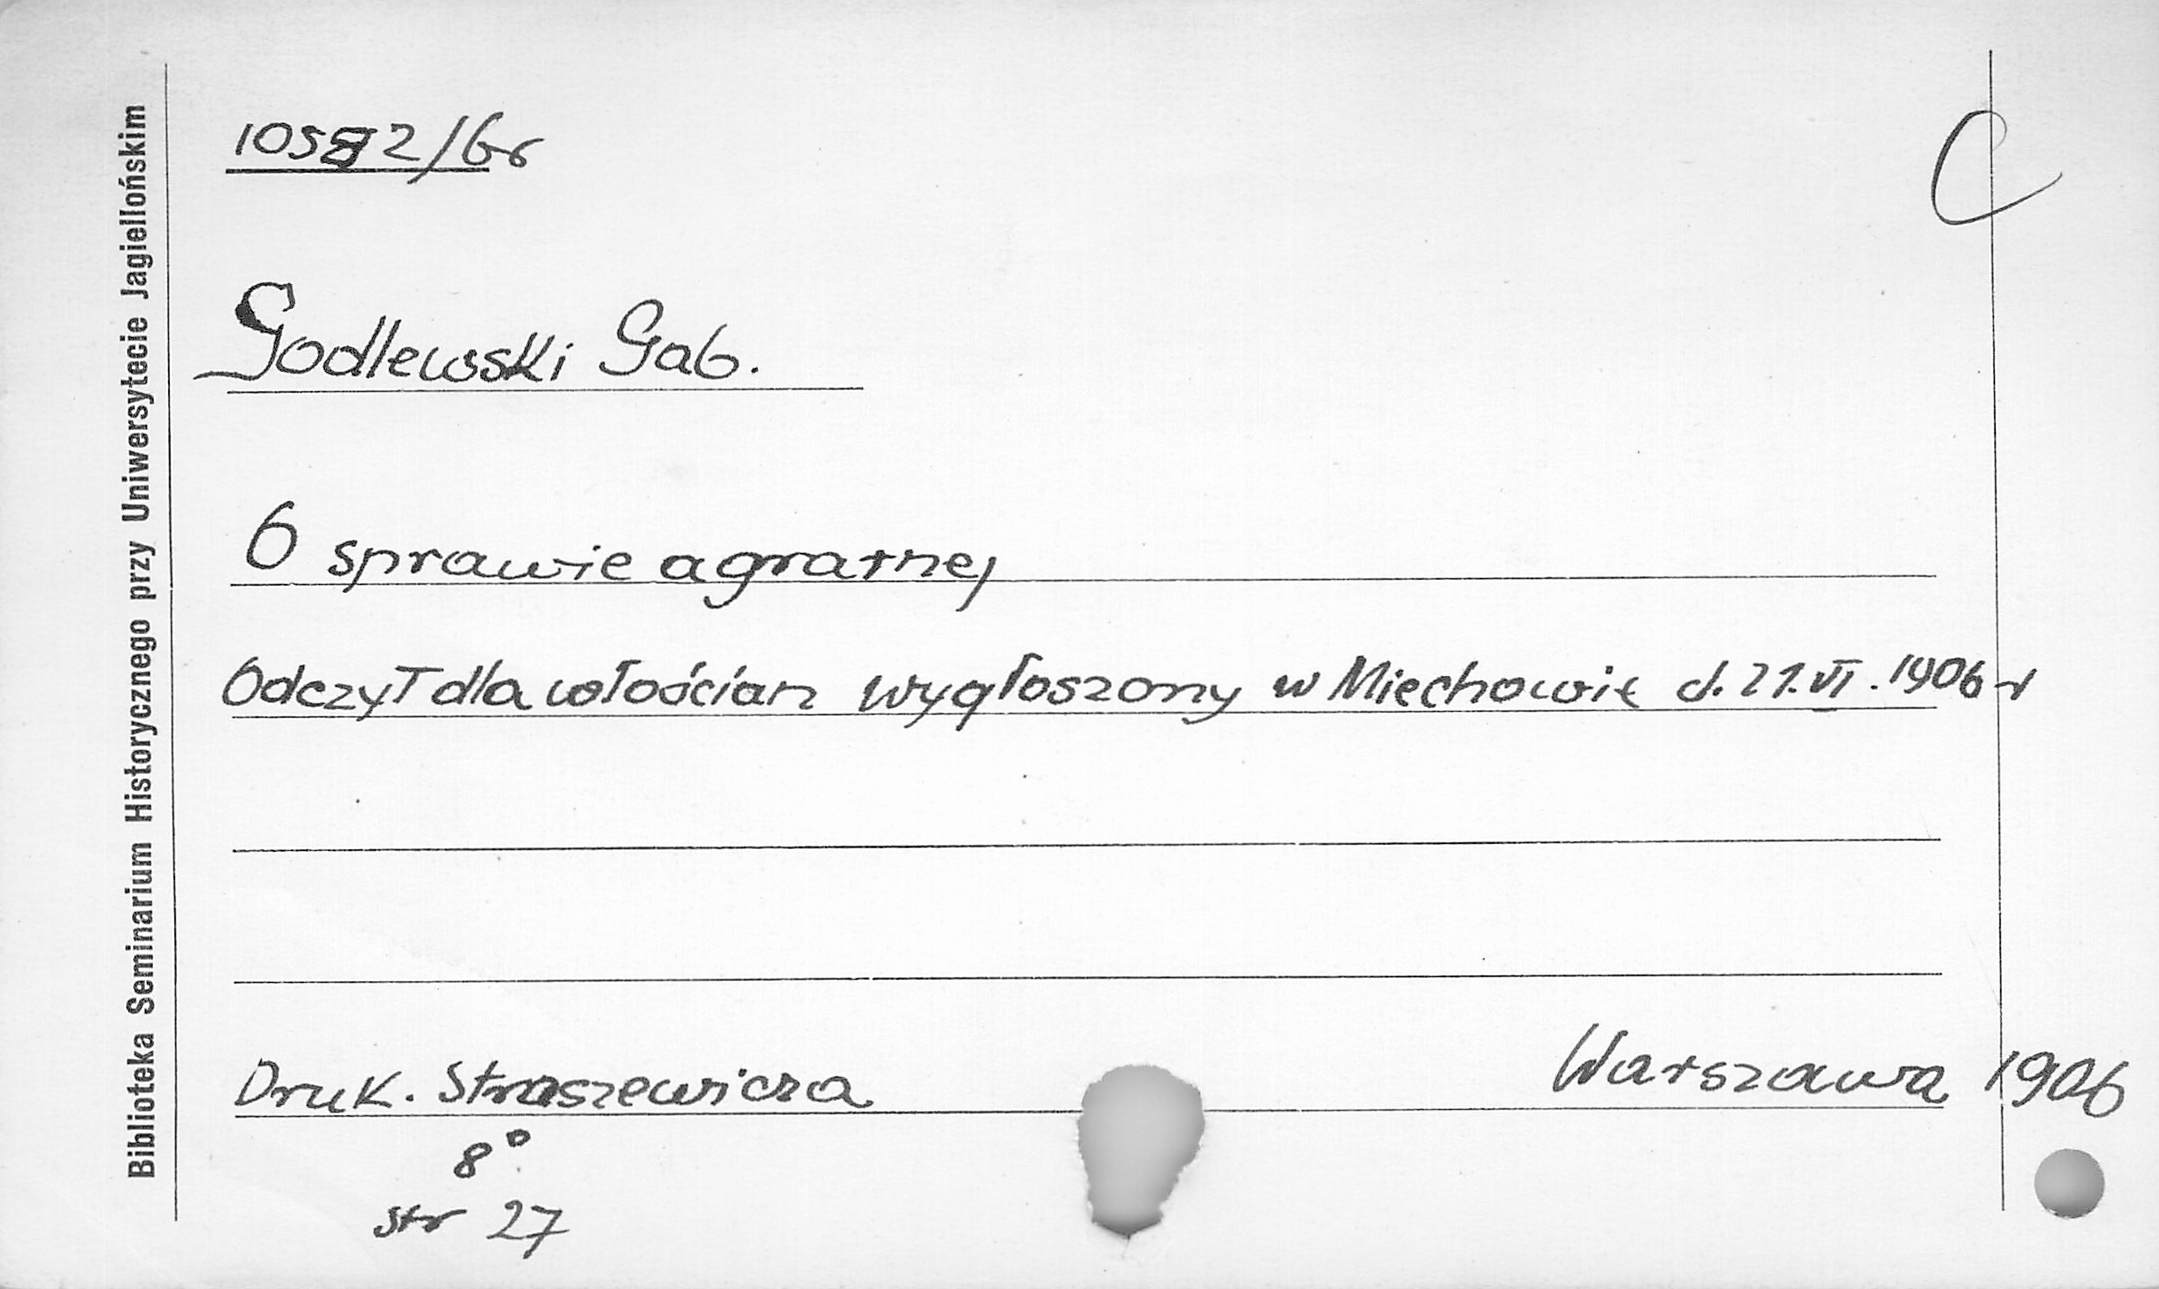 10582/Gr
C
Godlewski Gab.
O sprawie agrarnej
Odczyt dla włościan wygłoszony w Miechowie d. 21. VI. 1906 r
Druk. Straszewicza
Warszawa 1906
8°
str 27
Biblioteka Seminarium Historycznego przy Uniwersytecie Jagiellońskim